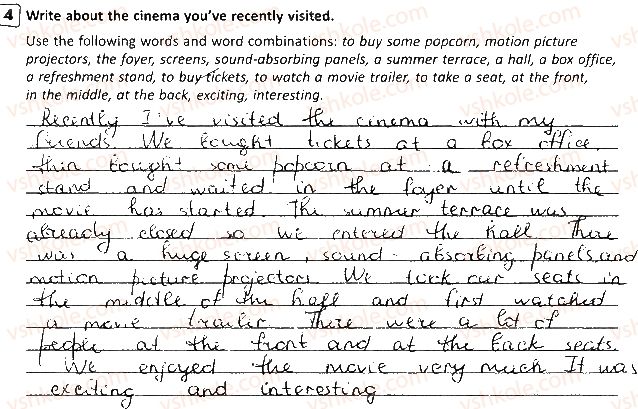 4 Write about the cinema you've recently visited.
Use the following words and word combinations: to buy some popcorn, motion picture
projectors, the foyer, screens, sound-absorbing panels, a summer terrace, a hall, a box office,
a refreshment stand, to buy tickets, to watch a movie trailer, to take a seat, at the front,
in the middle, at the back, exciting, interesting.
Recently I've visited the cinema with my
friends. We bought tickets at a box office,
then bought some popcorn at a refreshment
stand and waited in the foyer until the
movie has started. The summer terrace was
already closed so we entered the hall There
was a huge screen, sound-absorbing panels, and
motion picture projectors. We took our seats in
the middle of the hall and first watched
a movie trailer. There were a lot of
people at the front and at the back seats.
We enjoyed the movie very much It was
exciting and interesting
vshkole.com